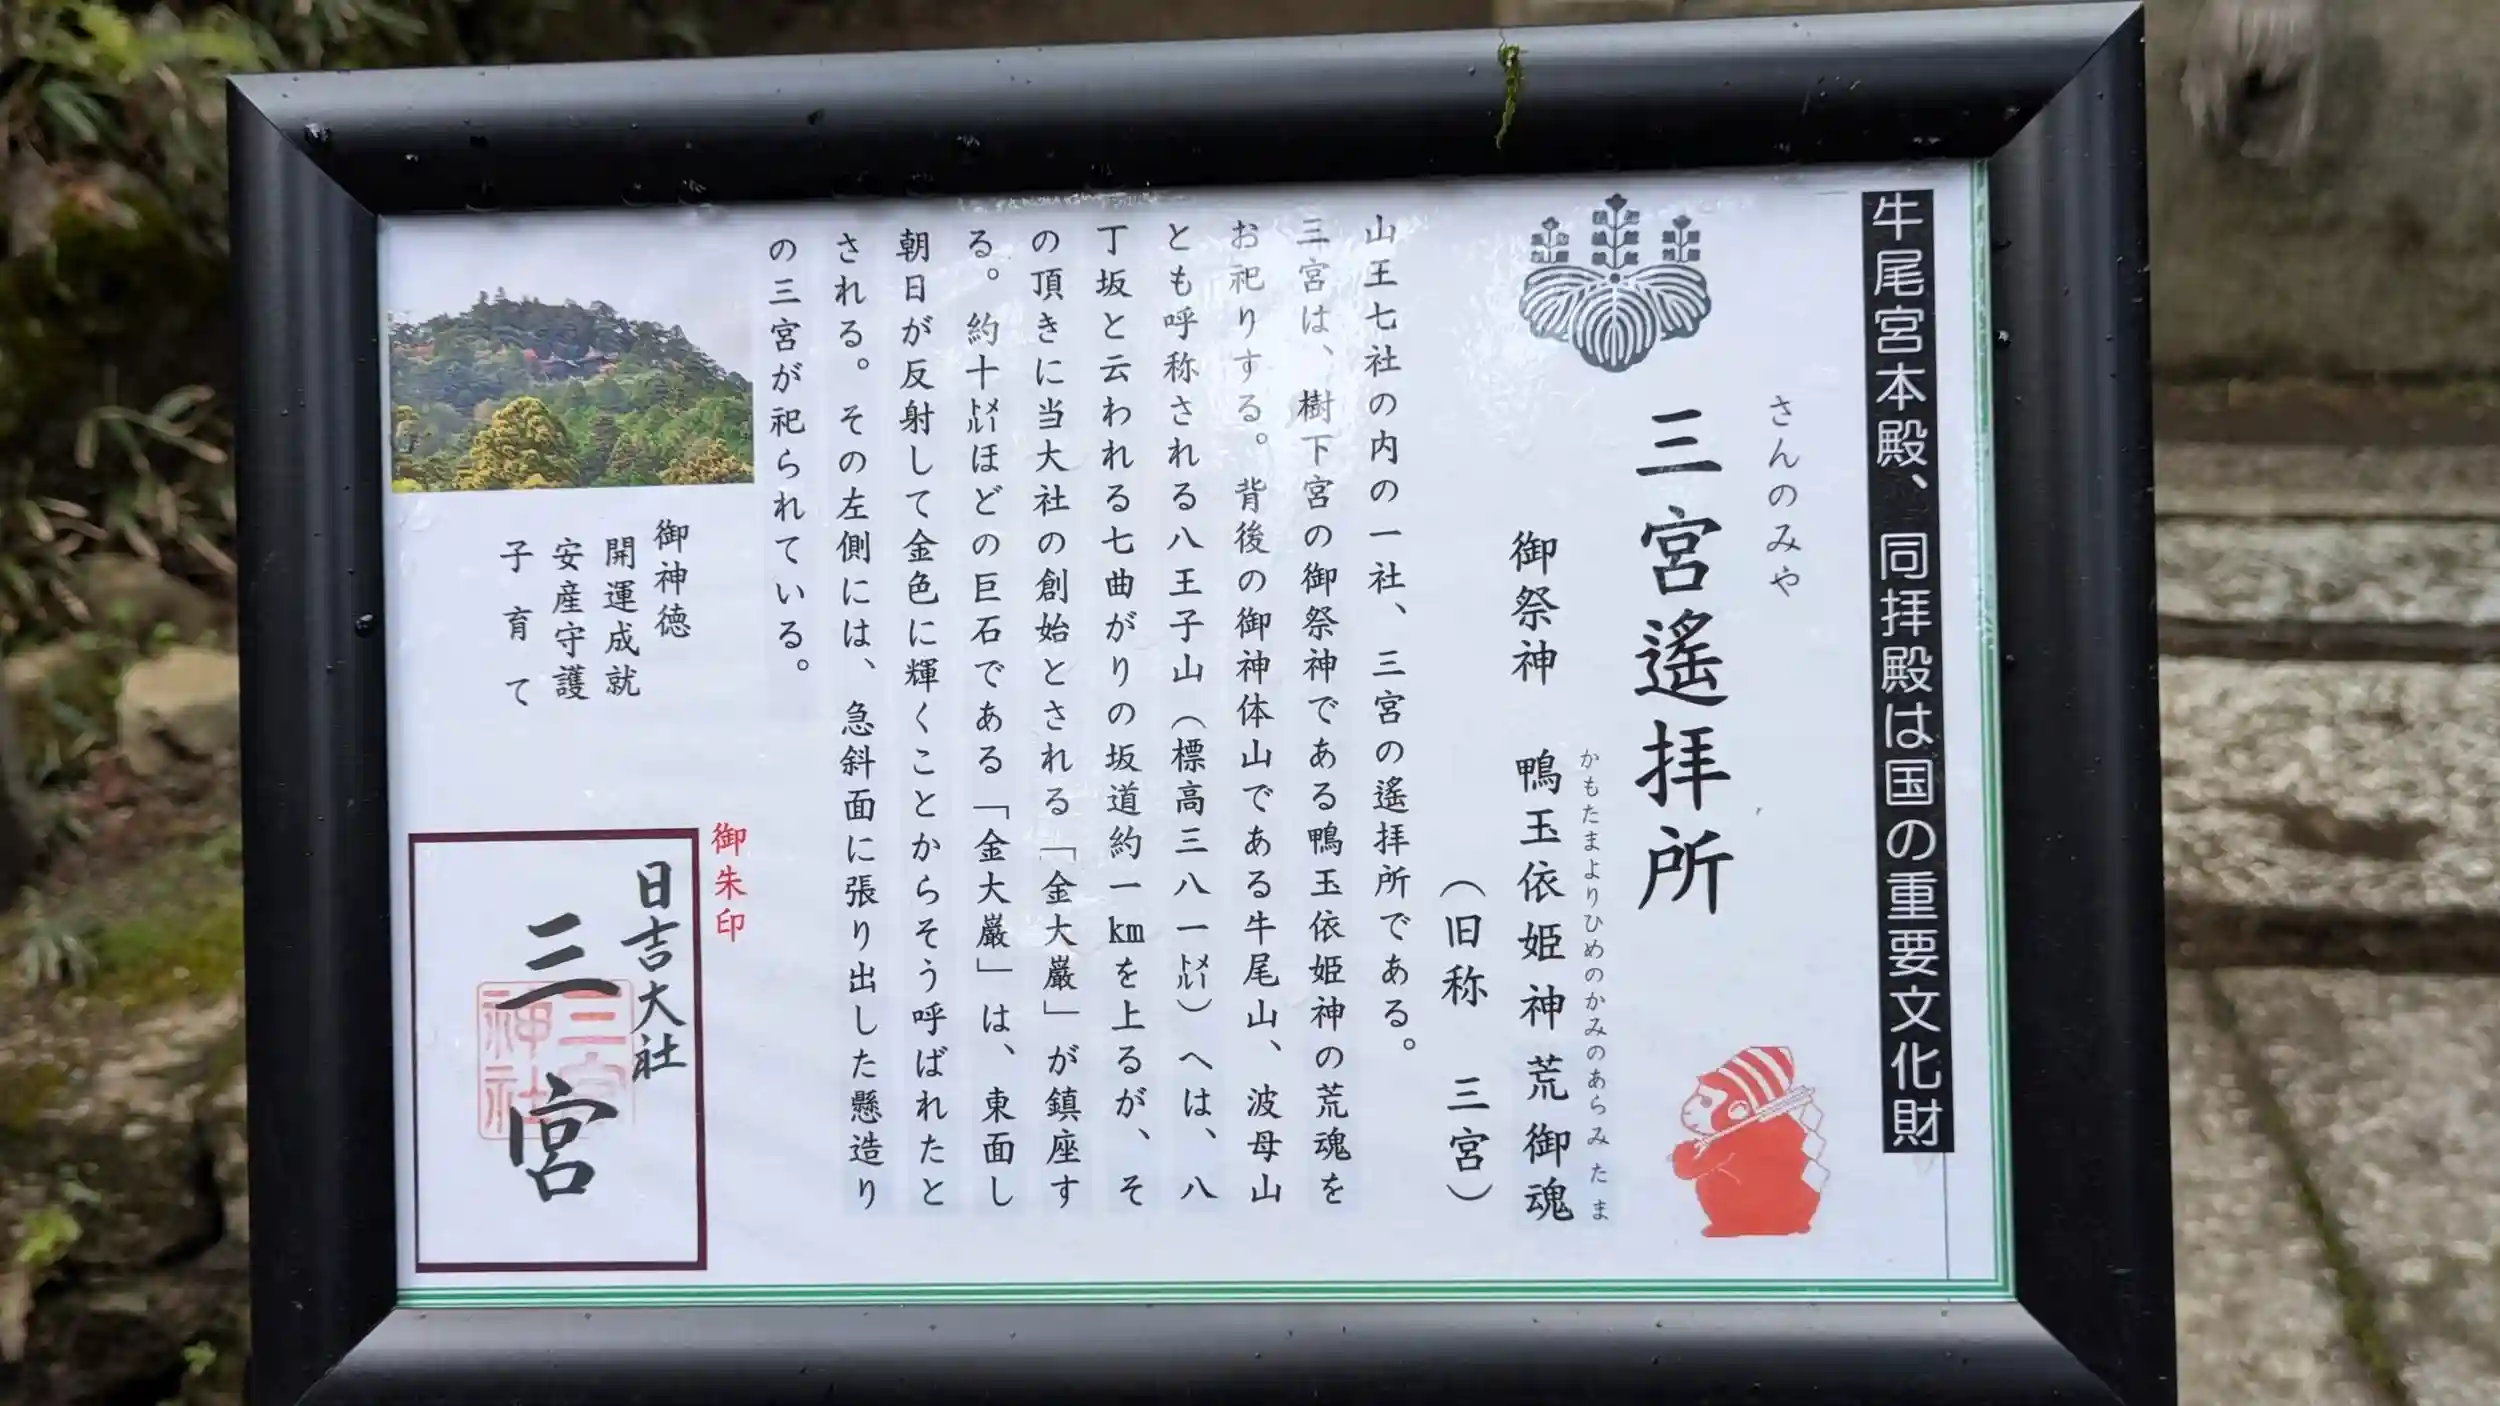 牛尾宮本殿、同拝殿は国の重要文化財
さんのみや
三宮遙拝所
かもたまよりひめのかみのあらみたま
御祭神 鴨玉依姫神荒御魂
（旧称 三宮）
山王七社の内の一社、三宮の遙拝所である。
三宮は、樹下宮の御祭神である鴨玉依姫神の荒魂を
お祀りする。背後の御神体山である牛尾山、波母山
とも呼称される八王子山（標高三八一㍍）へは、八
丁坂と云われる七曲がりの坂道約一㎞を上るが、そ
の頂きに当大社の創始とされる「金大巌」が鎮座す
る。約十㍍ほどの巨石である「金大巌」は、東面し
朝日が反射して金色に輝くことからそう呼ばれたと
される。その左側には、急斜面に張り出した懸造り
の三宮が祀られている。
御神徳
開運成就
安産守護
子育て
御朱印
日吉大社
三宮
三宮
神社